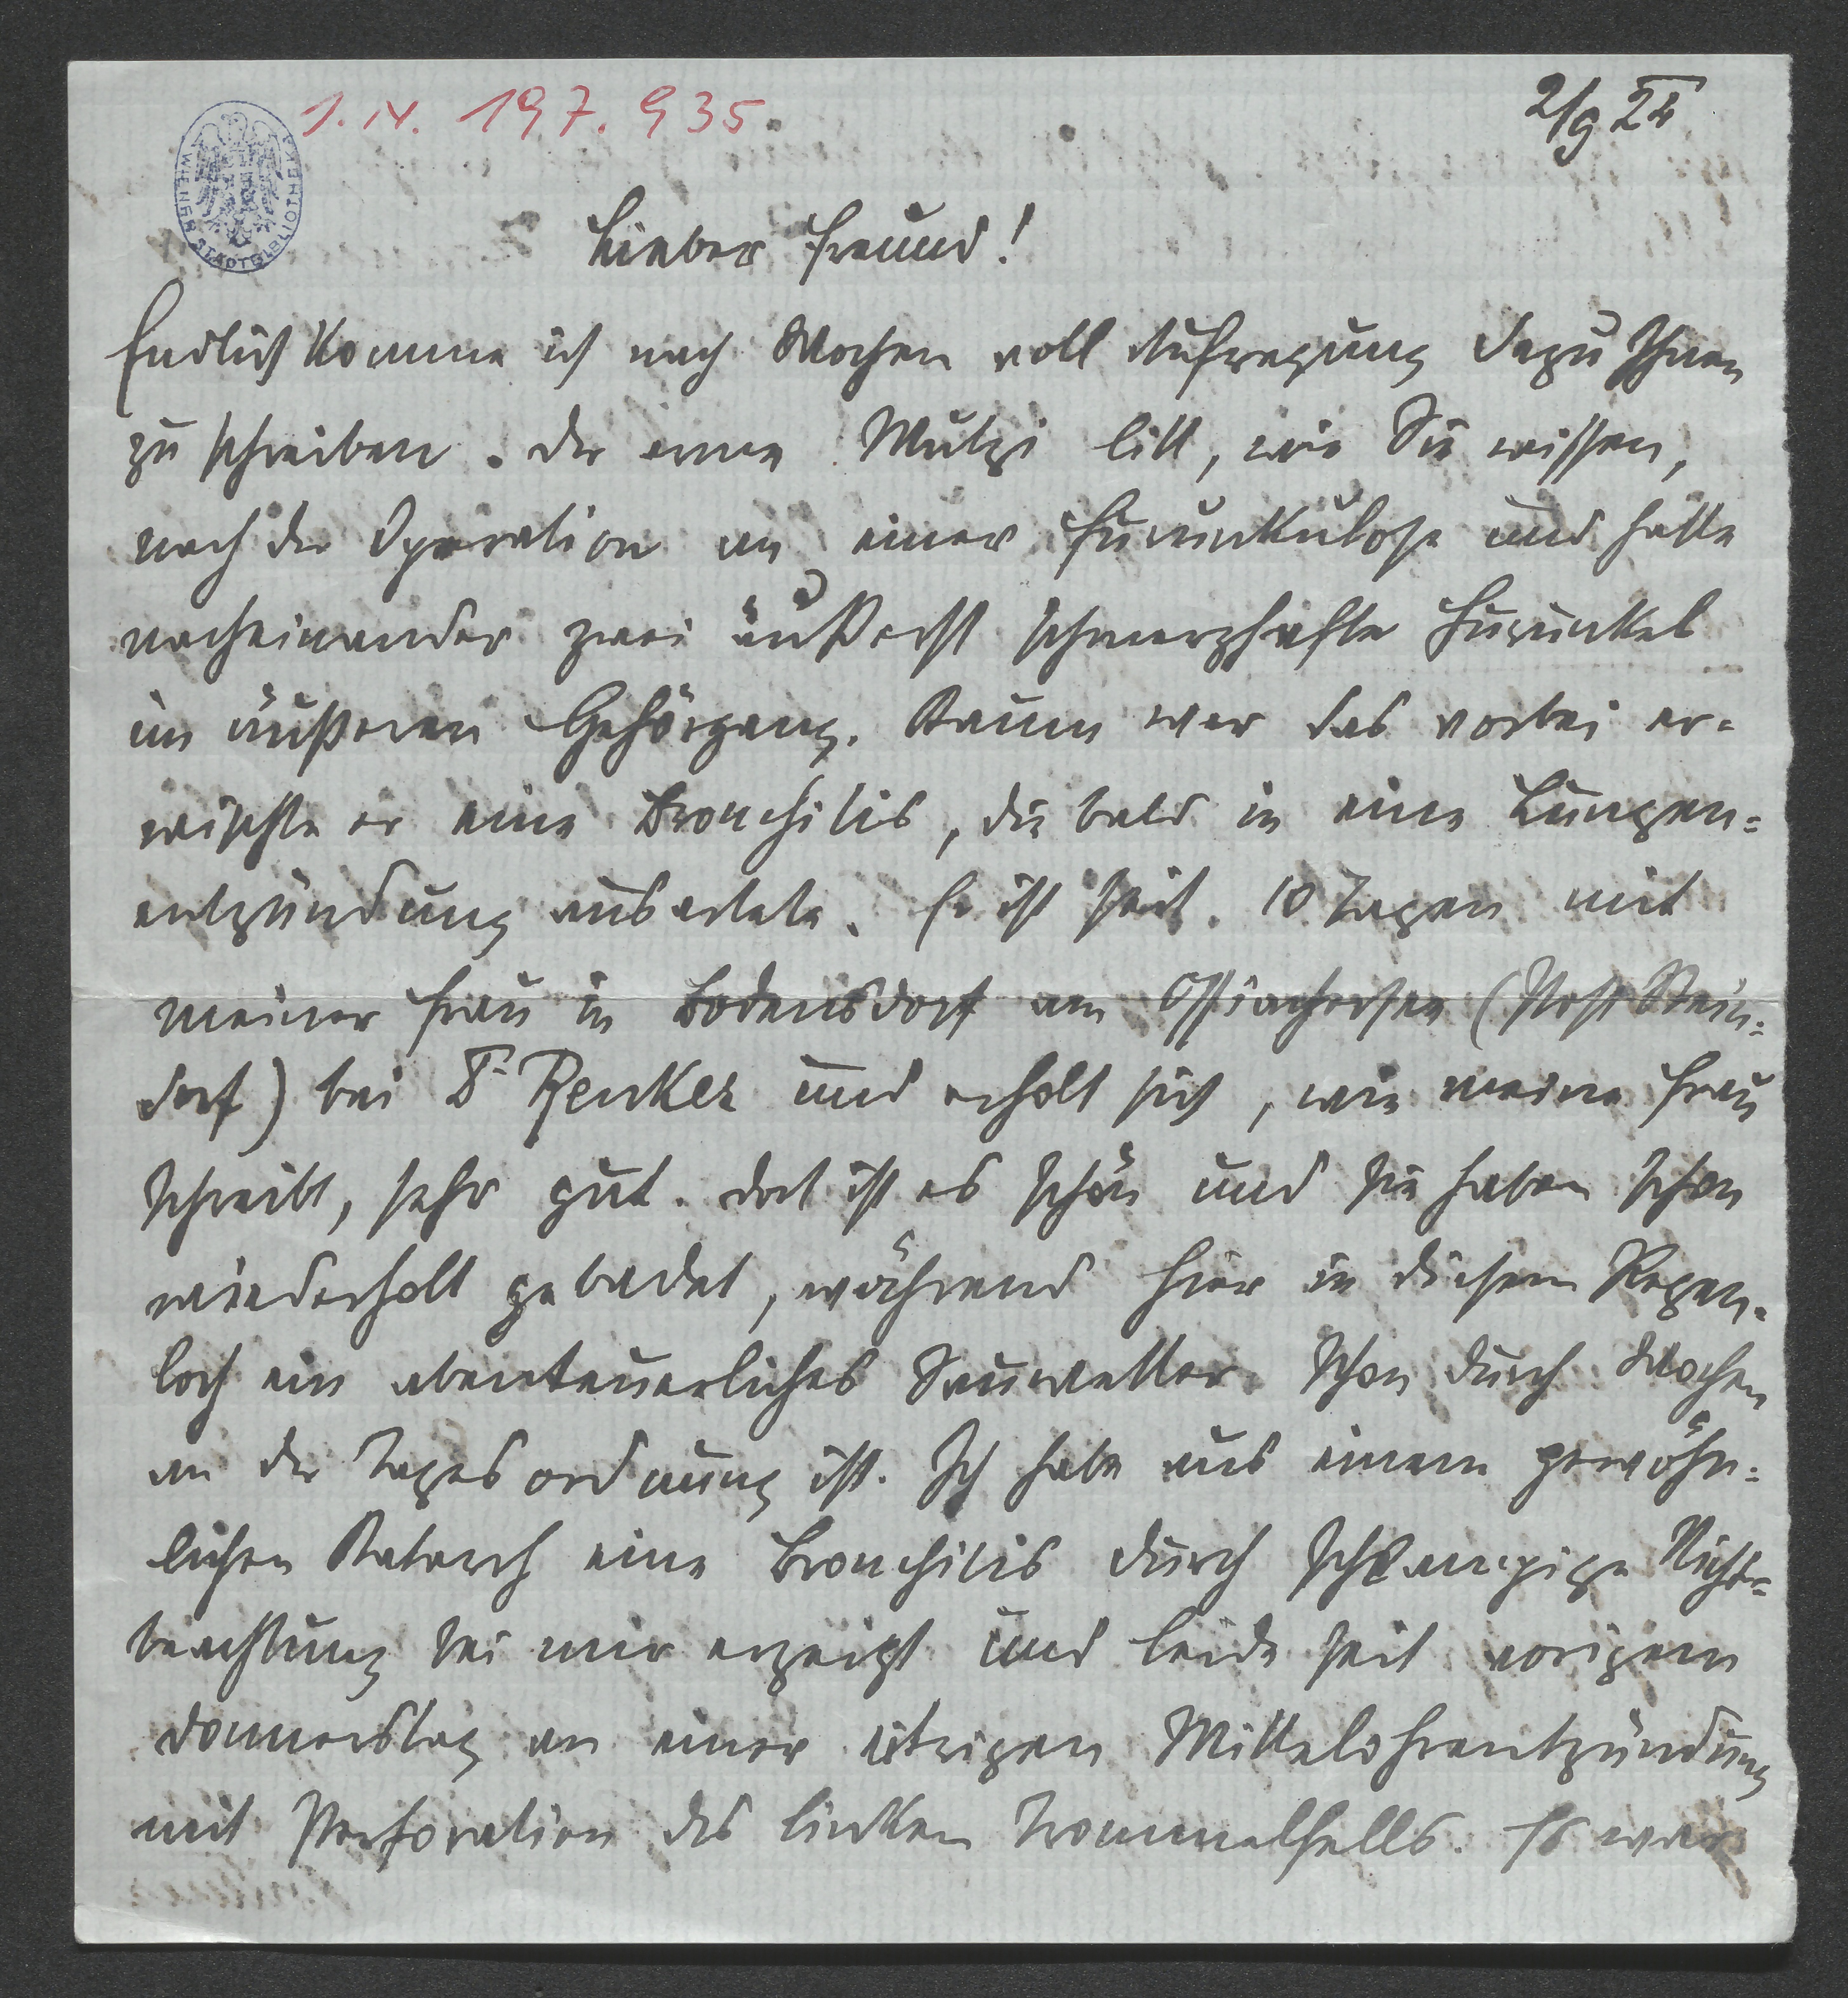 J. N. 197.935
2/9 24
WIENER STADTBIBLIOTHEK
Lieber Freund!
Endlich komme ich nach Wochen voll Aufregung dazu Ihnen
zu schreiben. Der arme Mutzi litt, wie Sie wissen,
nach der Operation an einer Furunkulose und hatte
nacheinander zwei äußerst schmerzhafte Furunkel
im äußeren Gehörgang. Kaum war das vorbei er=
wischte er eine Bronchitis, die bald in eine Lungen=
entzündung ausartete. Er ist seit 10 Tagen mit
meiner Frau in Bodensdorf am Ossiachersee (Post Stein=
dorf) bei Dr Renker und erholt sich, wie meine Frau
schreibt, sehr gut. Dort ist es schön und sie haben schon
wiederholt gebadet, während hier in diesem Regen=
loch ein abenteuerliches Sauwetter schon durch Wochen
an der Tagesordnung ist. Ich habe aus einem gewöhn=
lichen Katarrh eine Bronchitis durch schlampige Nicht=
beachtung bei mir erzeugt und leide seit vorigem
Donnerstag an einer eitrigen Mittelohrentzündung
mit Perforation des linken Trommelfells. Es war